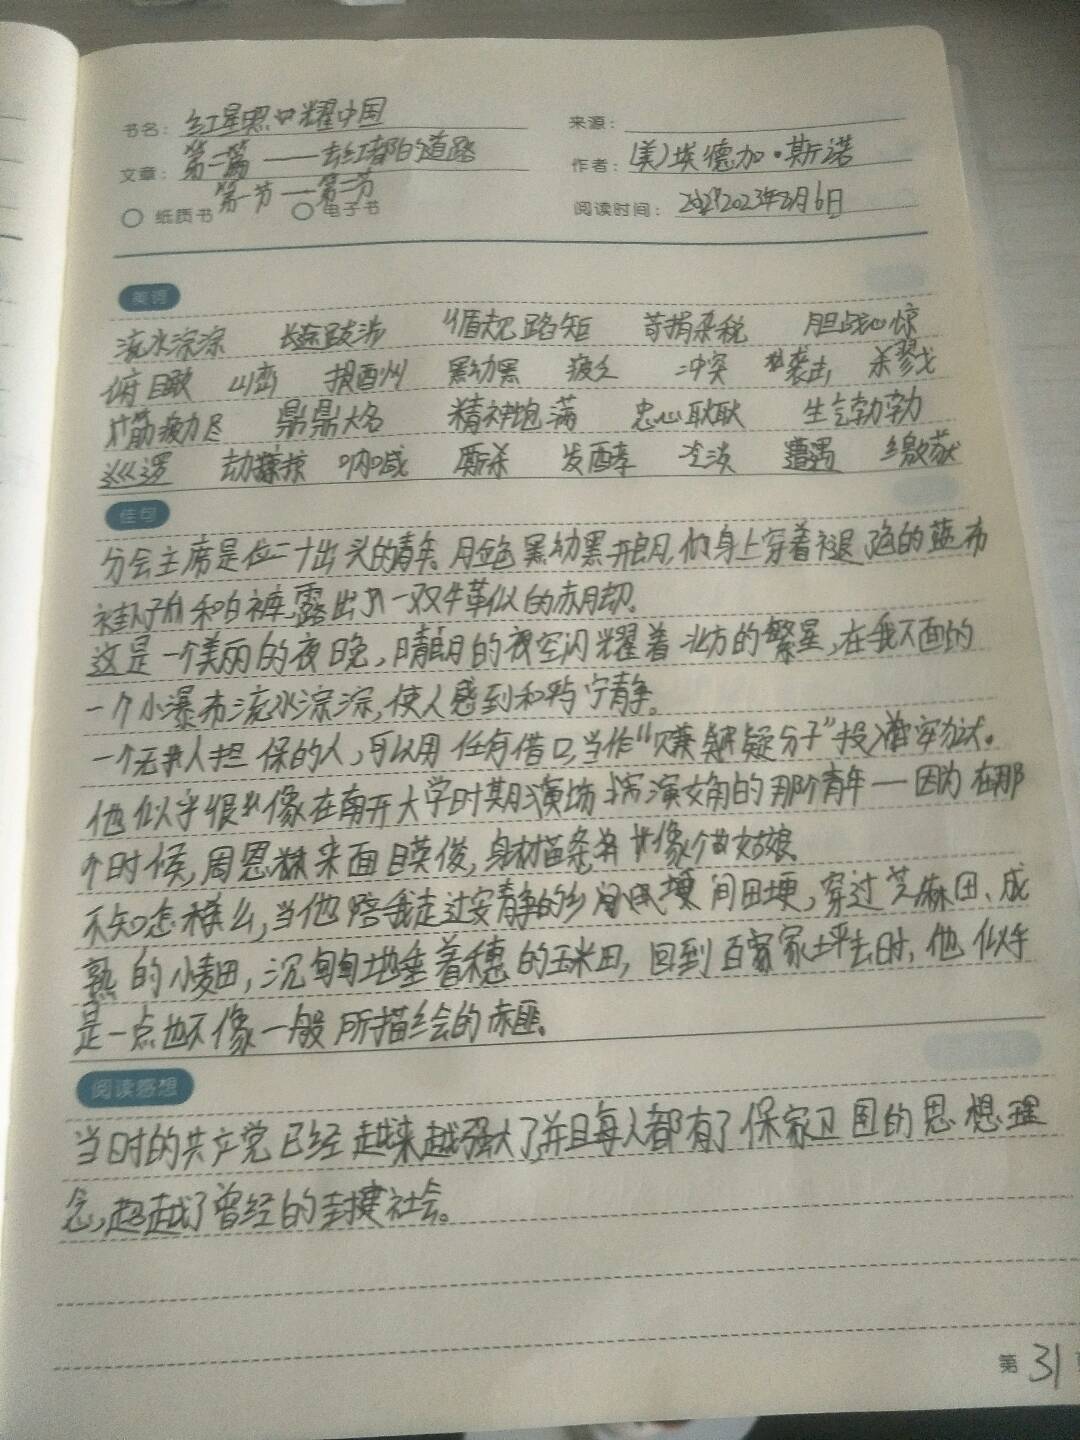 书名：红星照耀中国
来源：
文章：第二篇——去红都的道路
作者：(美)埃德加·斯诺
第一节——第二节
纸质书 电子书
阅读时间：2023年3月6日
美词
流水淙淙 长途跋涉 循规蹈矩 苛捐杂税 胆战心惊
俯瞰 山峦 报酬 黝黑 疲乏 冲突 袭击 杀戮
筋疲力尽 鼎鼎大名 精神饱满 忠心耿耿 生气勃勃
巡逻 劫掠 呐喊 厮杀 发酵 冷淡 遭遇 缴获
佳句
分会主席是位二十出头的青年。脸色黝黑开朗,他身上穿着褪色的蓝布
褂子和白裤,露出一双牛革似的赤脚。
这是一个美丽的夜晚,晴朗的夜空闪耀着北方的繁星,在我下面的
一个小瀑布流水淙淙,使人感到和平宁静。
一个无人担保的人,可以用任何借口,当作“嫌疑分子”投入牢。
他似乎很像在南开大学时期演出扮演女角的那个青年——因为在那
个时候,周恩来面目英俊,身材苗条,像个姑娘。
不知怎样么,当他陪我走过安静的乡间田埂,穿过芝麻田、成
熟的小麦田,沉甸甸地垂着穗的玉米田,回到百家坪去时,他似乎
是一点也不像一般所描绘的赤匪。
阅读感想
当时的共产党已经越来越强大了,并且每人都有了保家卫国的思想理
念,超越了曾经的封建社会。
第31